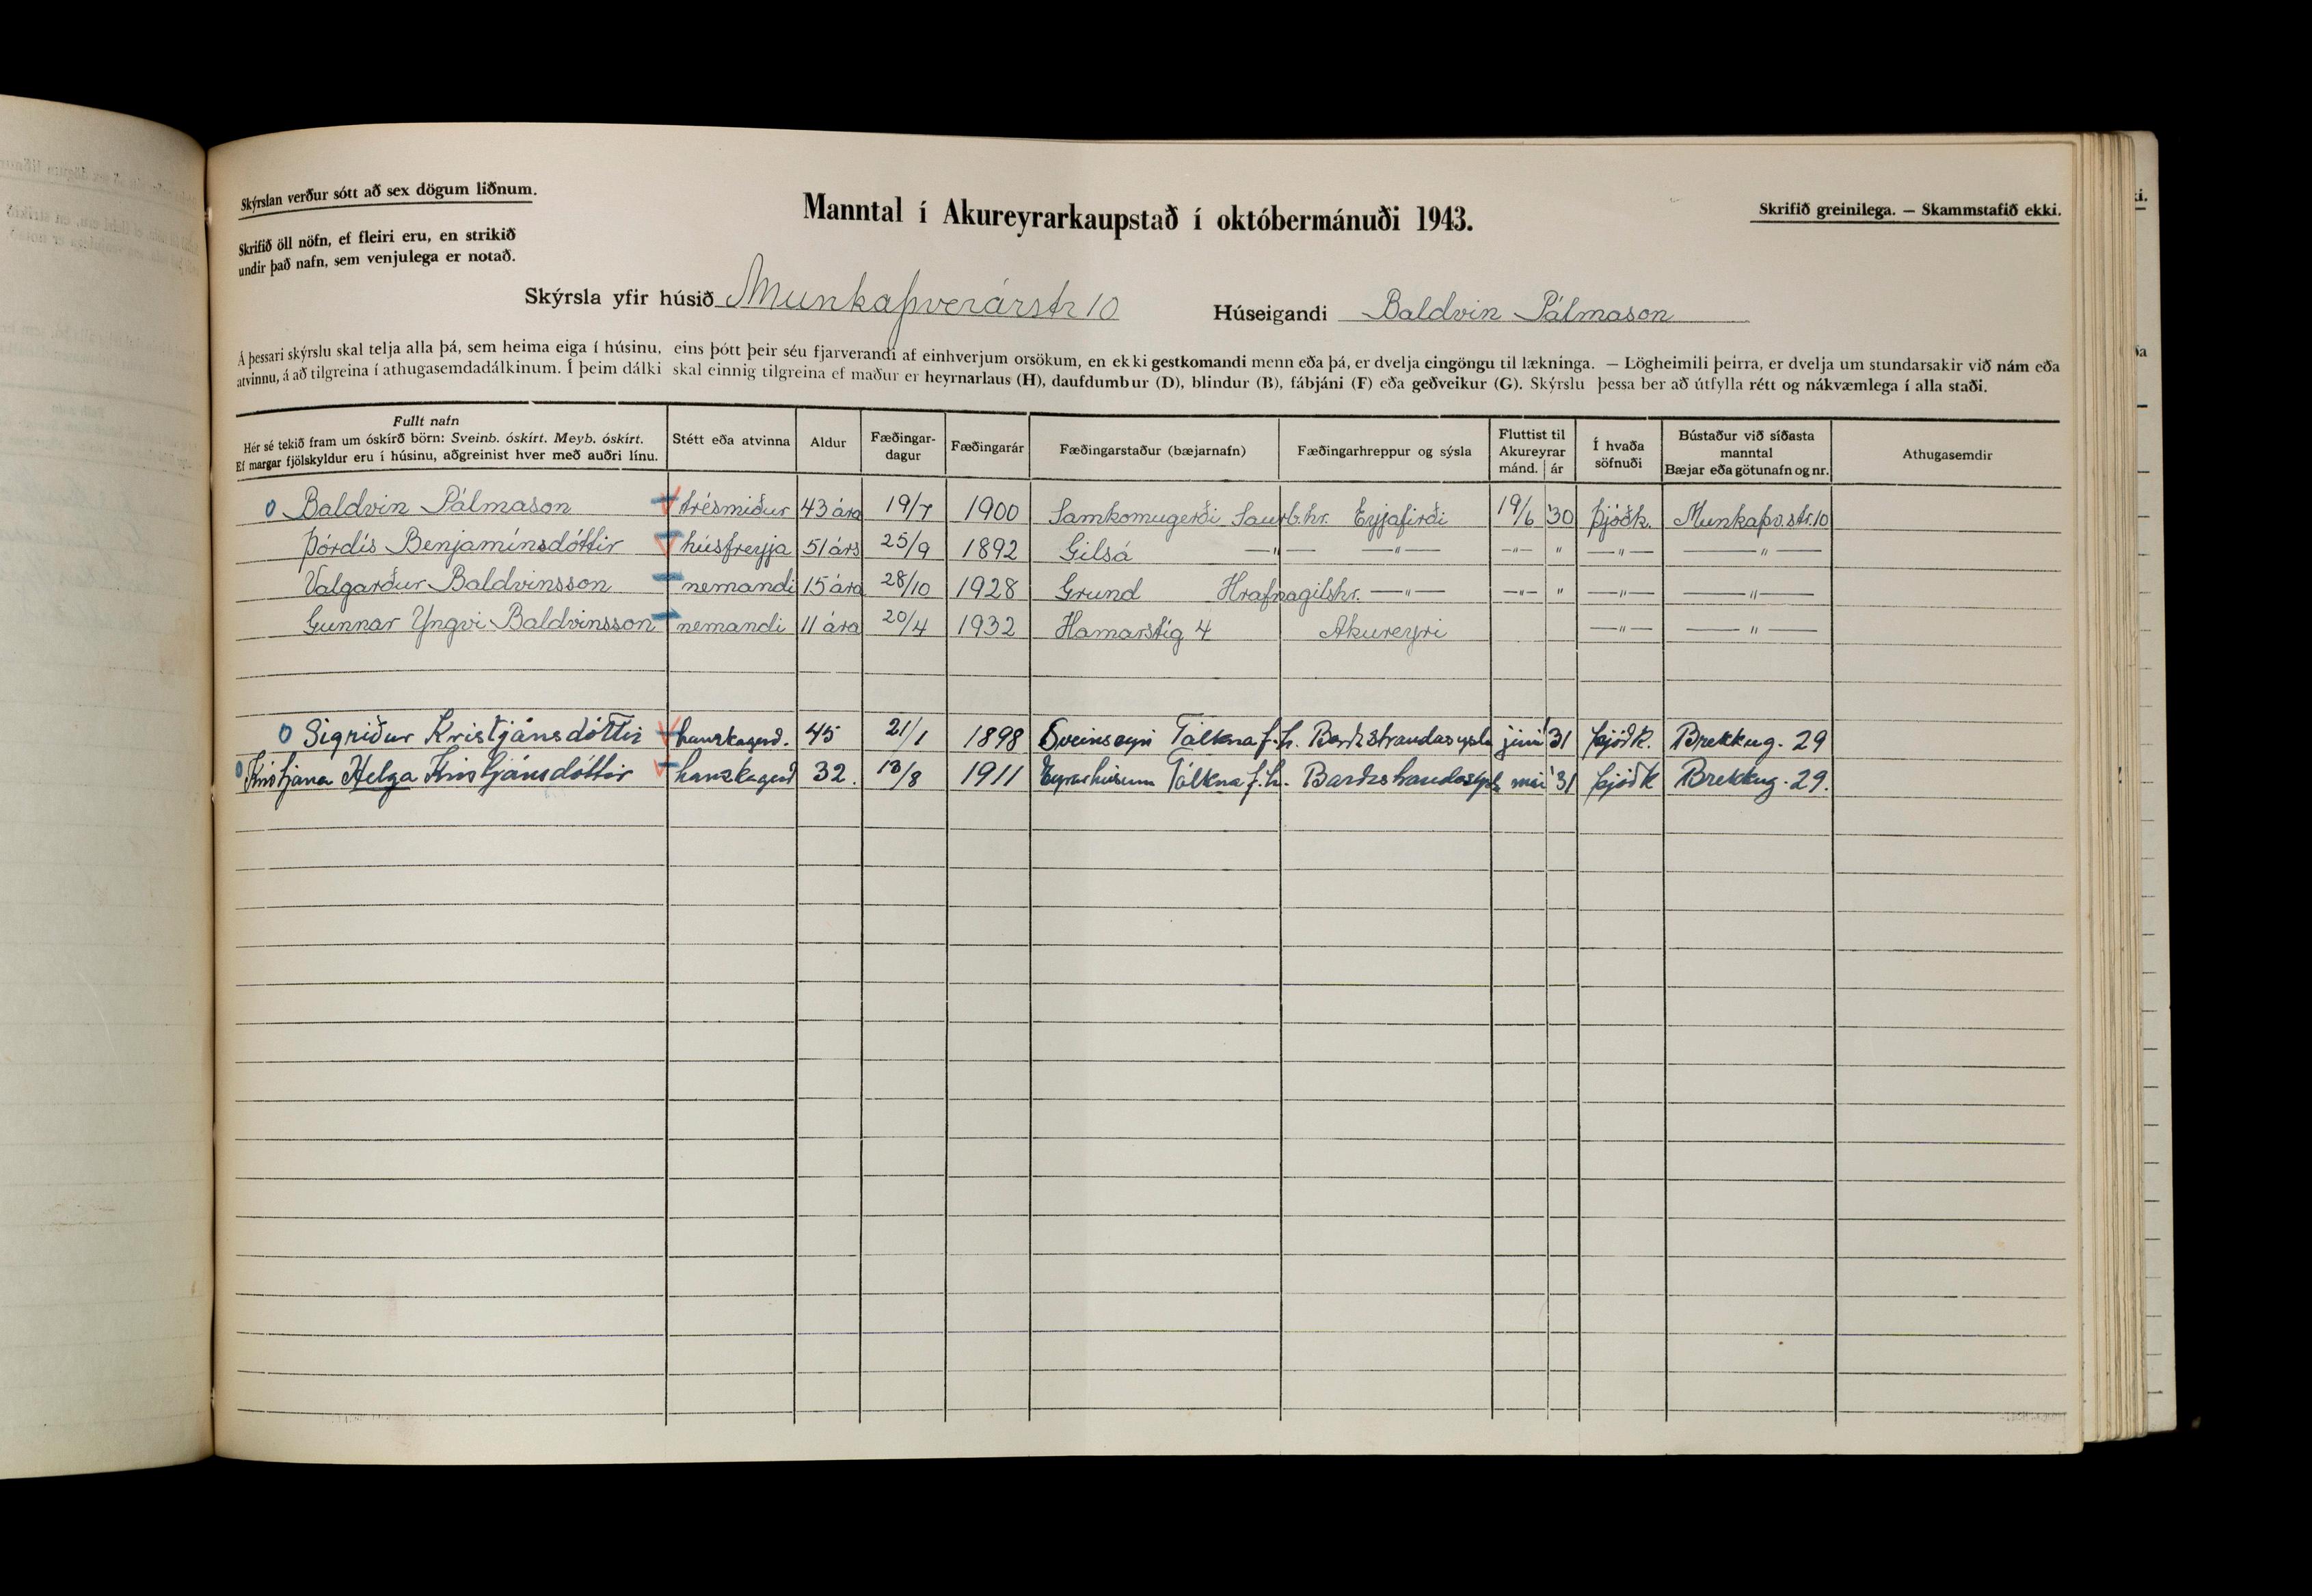 Skýrslan verður sótt að sex dögum liðnum.
Manntal í Akureyrarkaupstað í októbermánuði 1943.
Skrifið greinilega. — Skammstafið ekki.
Skrifið öll nöfn, ef fleiri eru, en strikið
undir það nafn, sem venjulega er notað.
Skýrsla yfir húsið Munkaþverárstr 10 Húseigandi Baldvin Pálmason
Á þessari skýrslu skal telja alla þá, sem heima eiga í húsinu, eins þótt þeir séu fjarverandi af einhverjum orsökum, en ekki gestkomandi menn eða þá, er dvelja eingöngu til lækninga. — Lögheimili þeirra, er dvelja um stundarsakir við nám eða
atvinnu, á að tilgreina í athugasemdadálkinum. Í þeim dálki skal einnig tilgreina ef maður er heyrnarlaus (H), daufdumbur (D), blindur (B), fábjáni (F) eða geðveikur (G). Skýrslu þessa ber að útfylla rétt og nákvæmlega í alla staði.
Fullt nafn
Hér sé tekið fram um óskírð börn: Sveinb. óskírt. Meyb. óskírt.
Ef margar fjölskyldur eru í húsinu, aðgreinist hver með auðri línu.
Stétt eða atvinna
Aldur
Fæðingar-
dagur
Fæðingarár
Fæðingarstaður (bæjarnafn)
Fæðingarhreppur og sýsla
Fluttist til
Akureyrar
mánd. ár
Í hvaða
söfnuði
Bústaður við síðasta
manntal
Bæjar eða götunafn og nr.
Athugasemdir
o Baldvin Pálmason trésmiður 43 ára 19/7 1900 Samkomugerði Saurb.hr. Eyjafirði 19/6 '30 Þjóðk. Munkaþv.str.10
Þórdís Benjamínsdóttir húsfreyja 51 árs 25/9 1892 Gilsá —"— —"— —"— " —"— —"—
Valgarður Baldvinsson nemandi 15 ára 28/10 1928 Grund Hrafnagilshr. —"— —"— " —"— —"—
Gunnar Yngvi Baldvinsson nemandi 11 ára 20/4 1932 Hamarstíg 4 Akureyri —"— —"—
o Sigriður Kristjánsdóttir hanzkagerð. 45 21/1 1898 Sveinseyri Tálknaf.h. Barðstrandasýsla júni '31 þjóðk. Brekkug. 29
o Kristjana Helga Kristjánsdóttir hanzkagerð 32. 13/8 1911 Eyrarhúsum Tálknaf.h. Barðastrandasýsl mai '31 þjóðk Brekkug. 29.